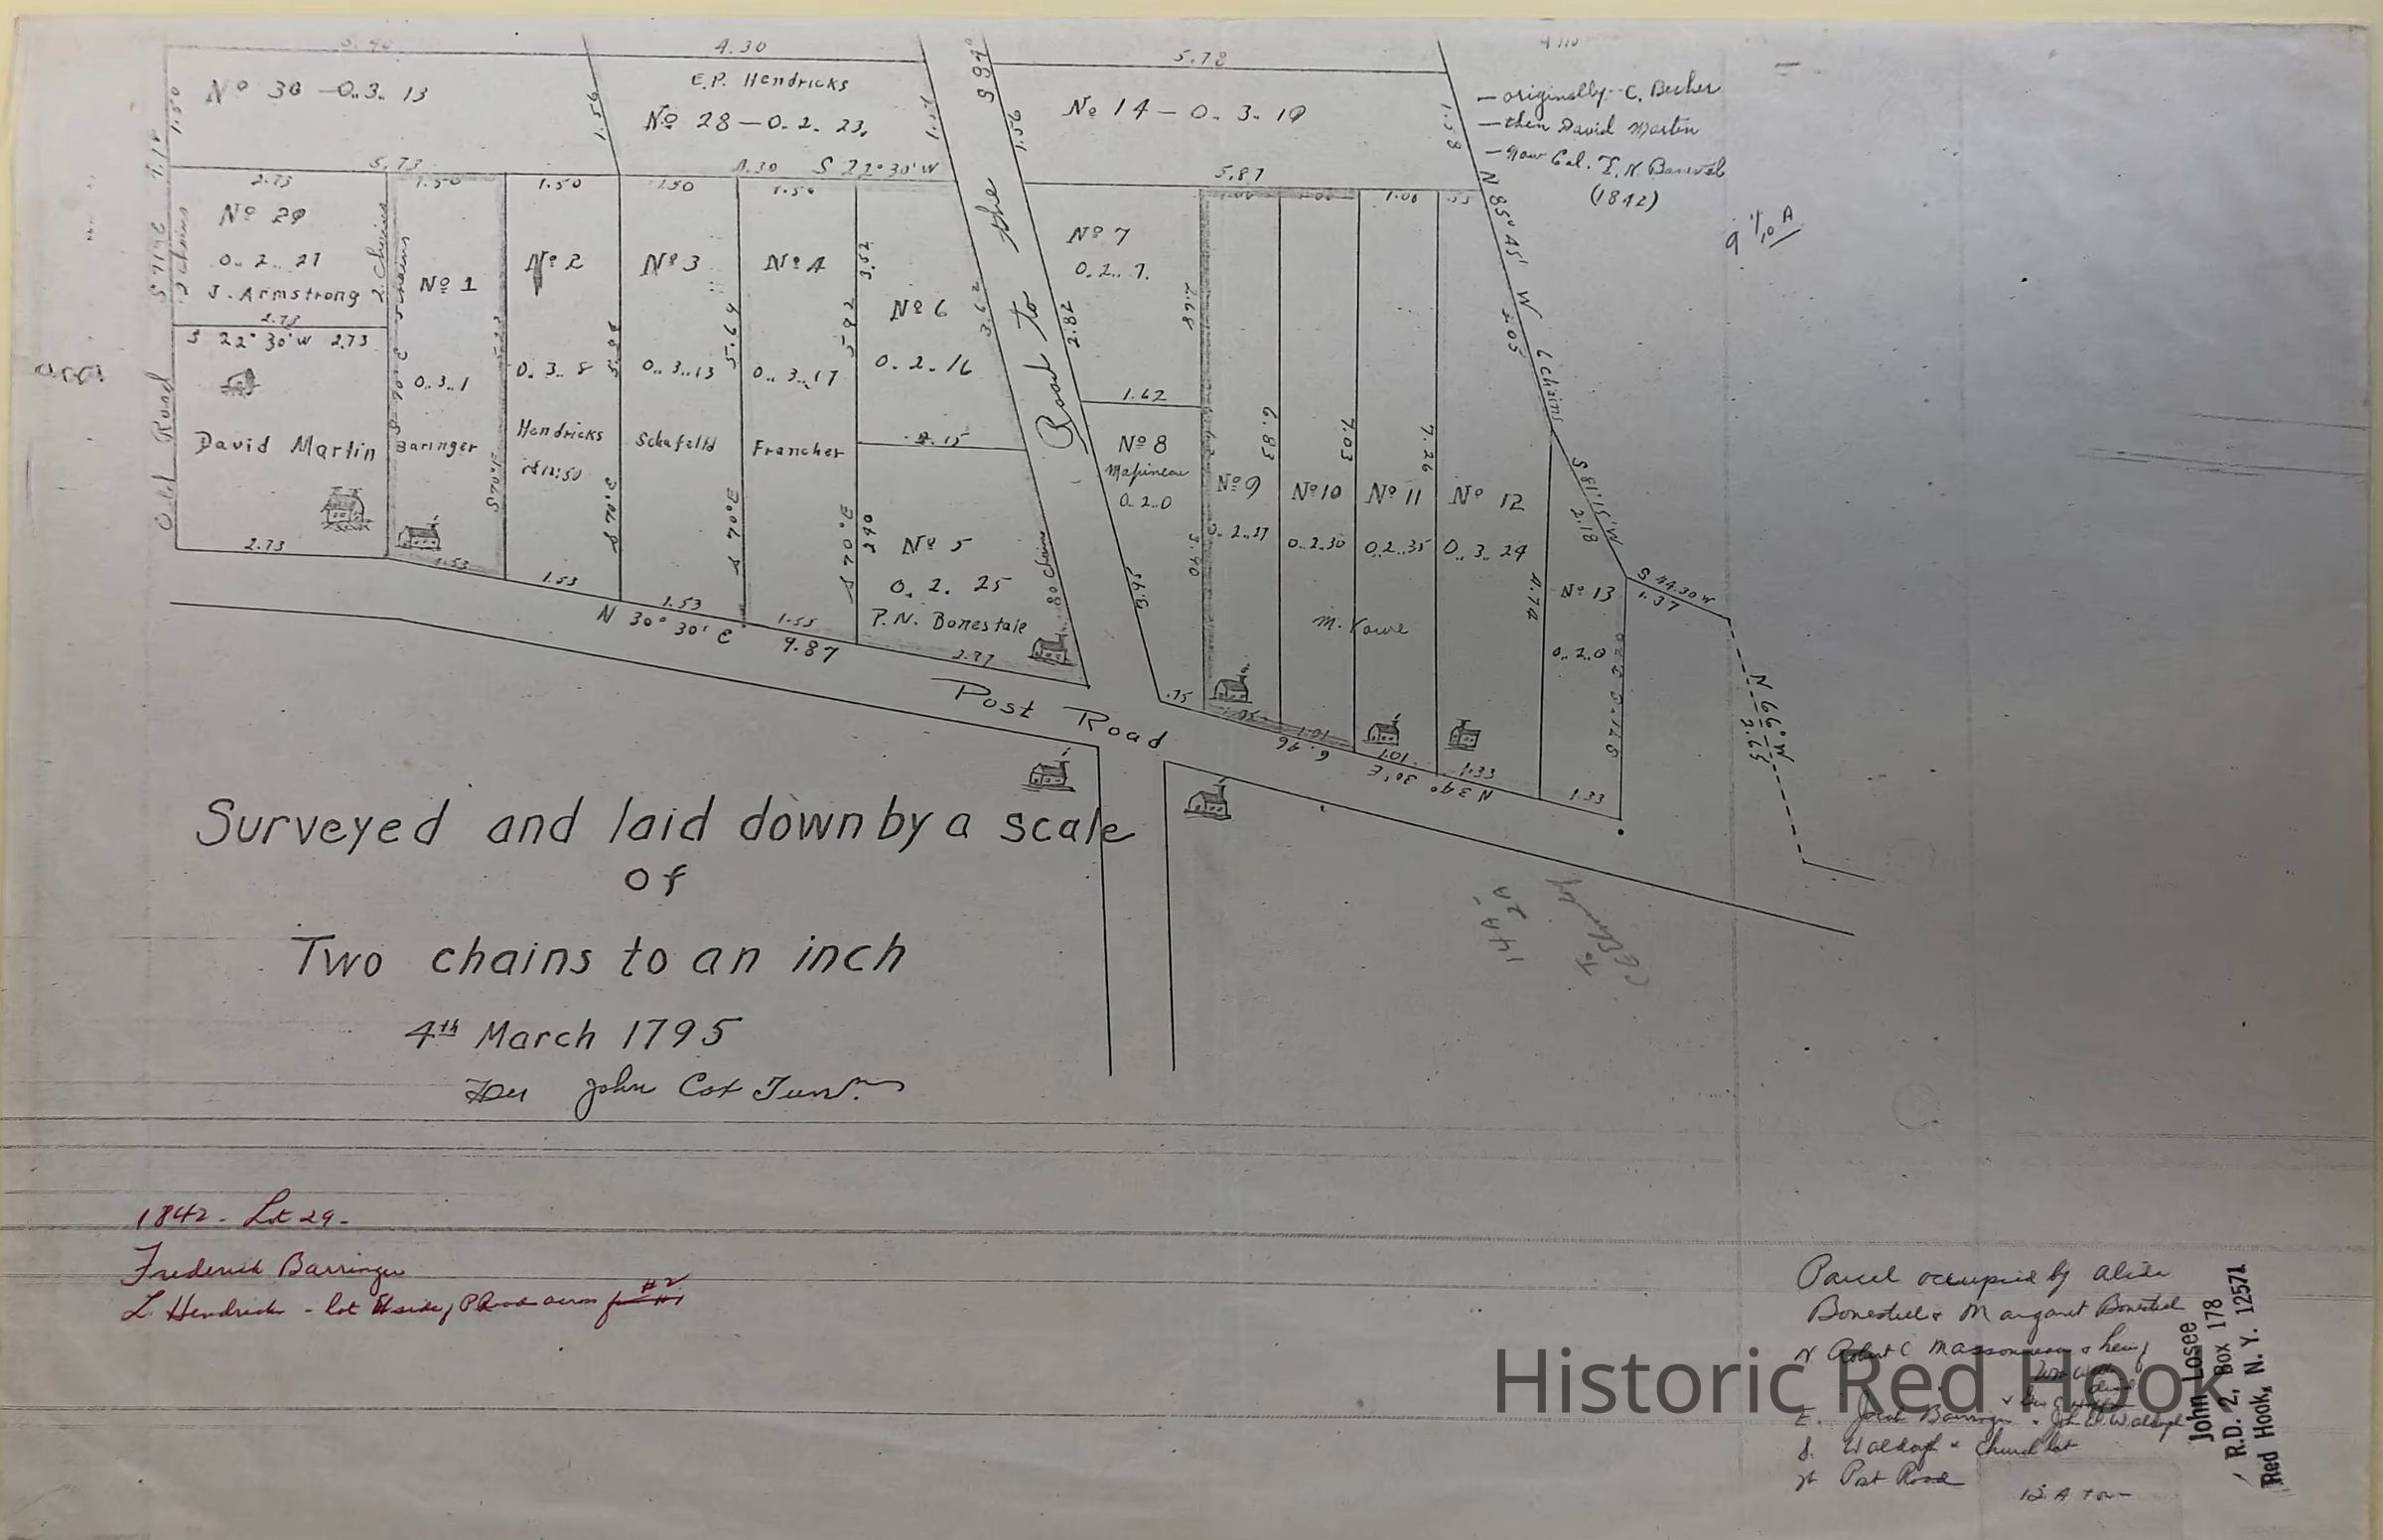 4.30
5.78
Nº 30 — 0..3.. 13
1.50
E.P. Hendricks
Nº 28 — 0.. 2.. 23.
1.56
1.56
Nº 14 — 0.. 3.. 19
1.58
— originally - C. Becker
— then David Martin
— now Col.
(1842)
9 1/10 A
5.73
4.30 S 22° 30' W
5.87
2.73
1.50
1.50
1.50
1.50
1.00
1.00
1.00
.55
Nº 29
0.. 2.. 27
J. Armstrong
2 Chains
2 Chains
2.73
S 22° 30' W 2.73
David Martin
2.73
Old Road
Nº 1
0..3..1
Baringer
S 70° E
1.53
Nº 2
0.. 3.. 8
Hendricks
S 70° E
1.53
Nº 3
0.. 3..13
Schafelld
5.69
S 70° E
1.53
Nº 4
0.. 3..17
Francher
5.92
S 70° E
1.55
3.52
Nº 6
0.. 2.. 16
3.62
2.15
Nº 5
0.. 2.. 25
P.N. Bonestale
2.90
80 chains
2.77
Road to the
1.56
Nº 7
0..2.. 7.
2.82
2.68
1.62
Nº 8
0..2..0
3.95
3.90
.75
Nº 9
0..2..27
6.83
1.05
Nº 10
0..2..30
7.03
1.01
Nº 11
0..2..35
7.26
1.01
Nº 12
0.. 3.. 24
4.74
1.33
Nº 13
0..2..0
1.33
N 85° 45' W
2.03
6 chains
S 81.15 W.
2.18
S 44.30 W
1.37
N 66° W
2.63
N 30° 30' E
9.87
Post Road
6.96
N 34° 30' E
Surveyed and laid down by a scale
of
Two chains to an inch
4th March 1795
Per John Cox Junr.
14 A
2 A
1842 - Lot 29 -
Frederick Barringer
L. Hendrick - lot side
#2
Parcel occupied by Alida
Bonesteel & Margaret Bonesteel
N Robert C Massonneau & heirs
E. Jacob Barringer
S. Waldorph & Church lot
W Post Road
John Losee
R.D. 2, Box 178
Red Hook, N. Y. 12571
Historic Red Hook